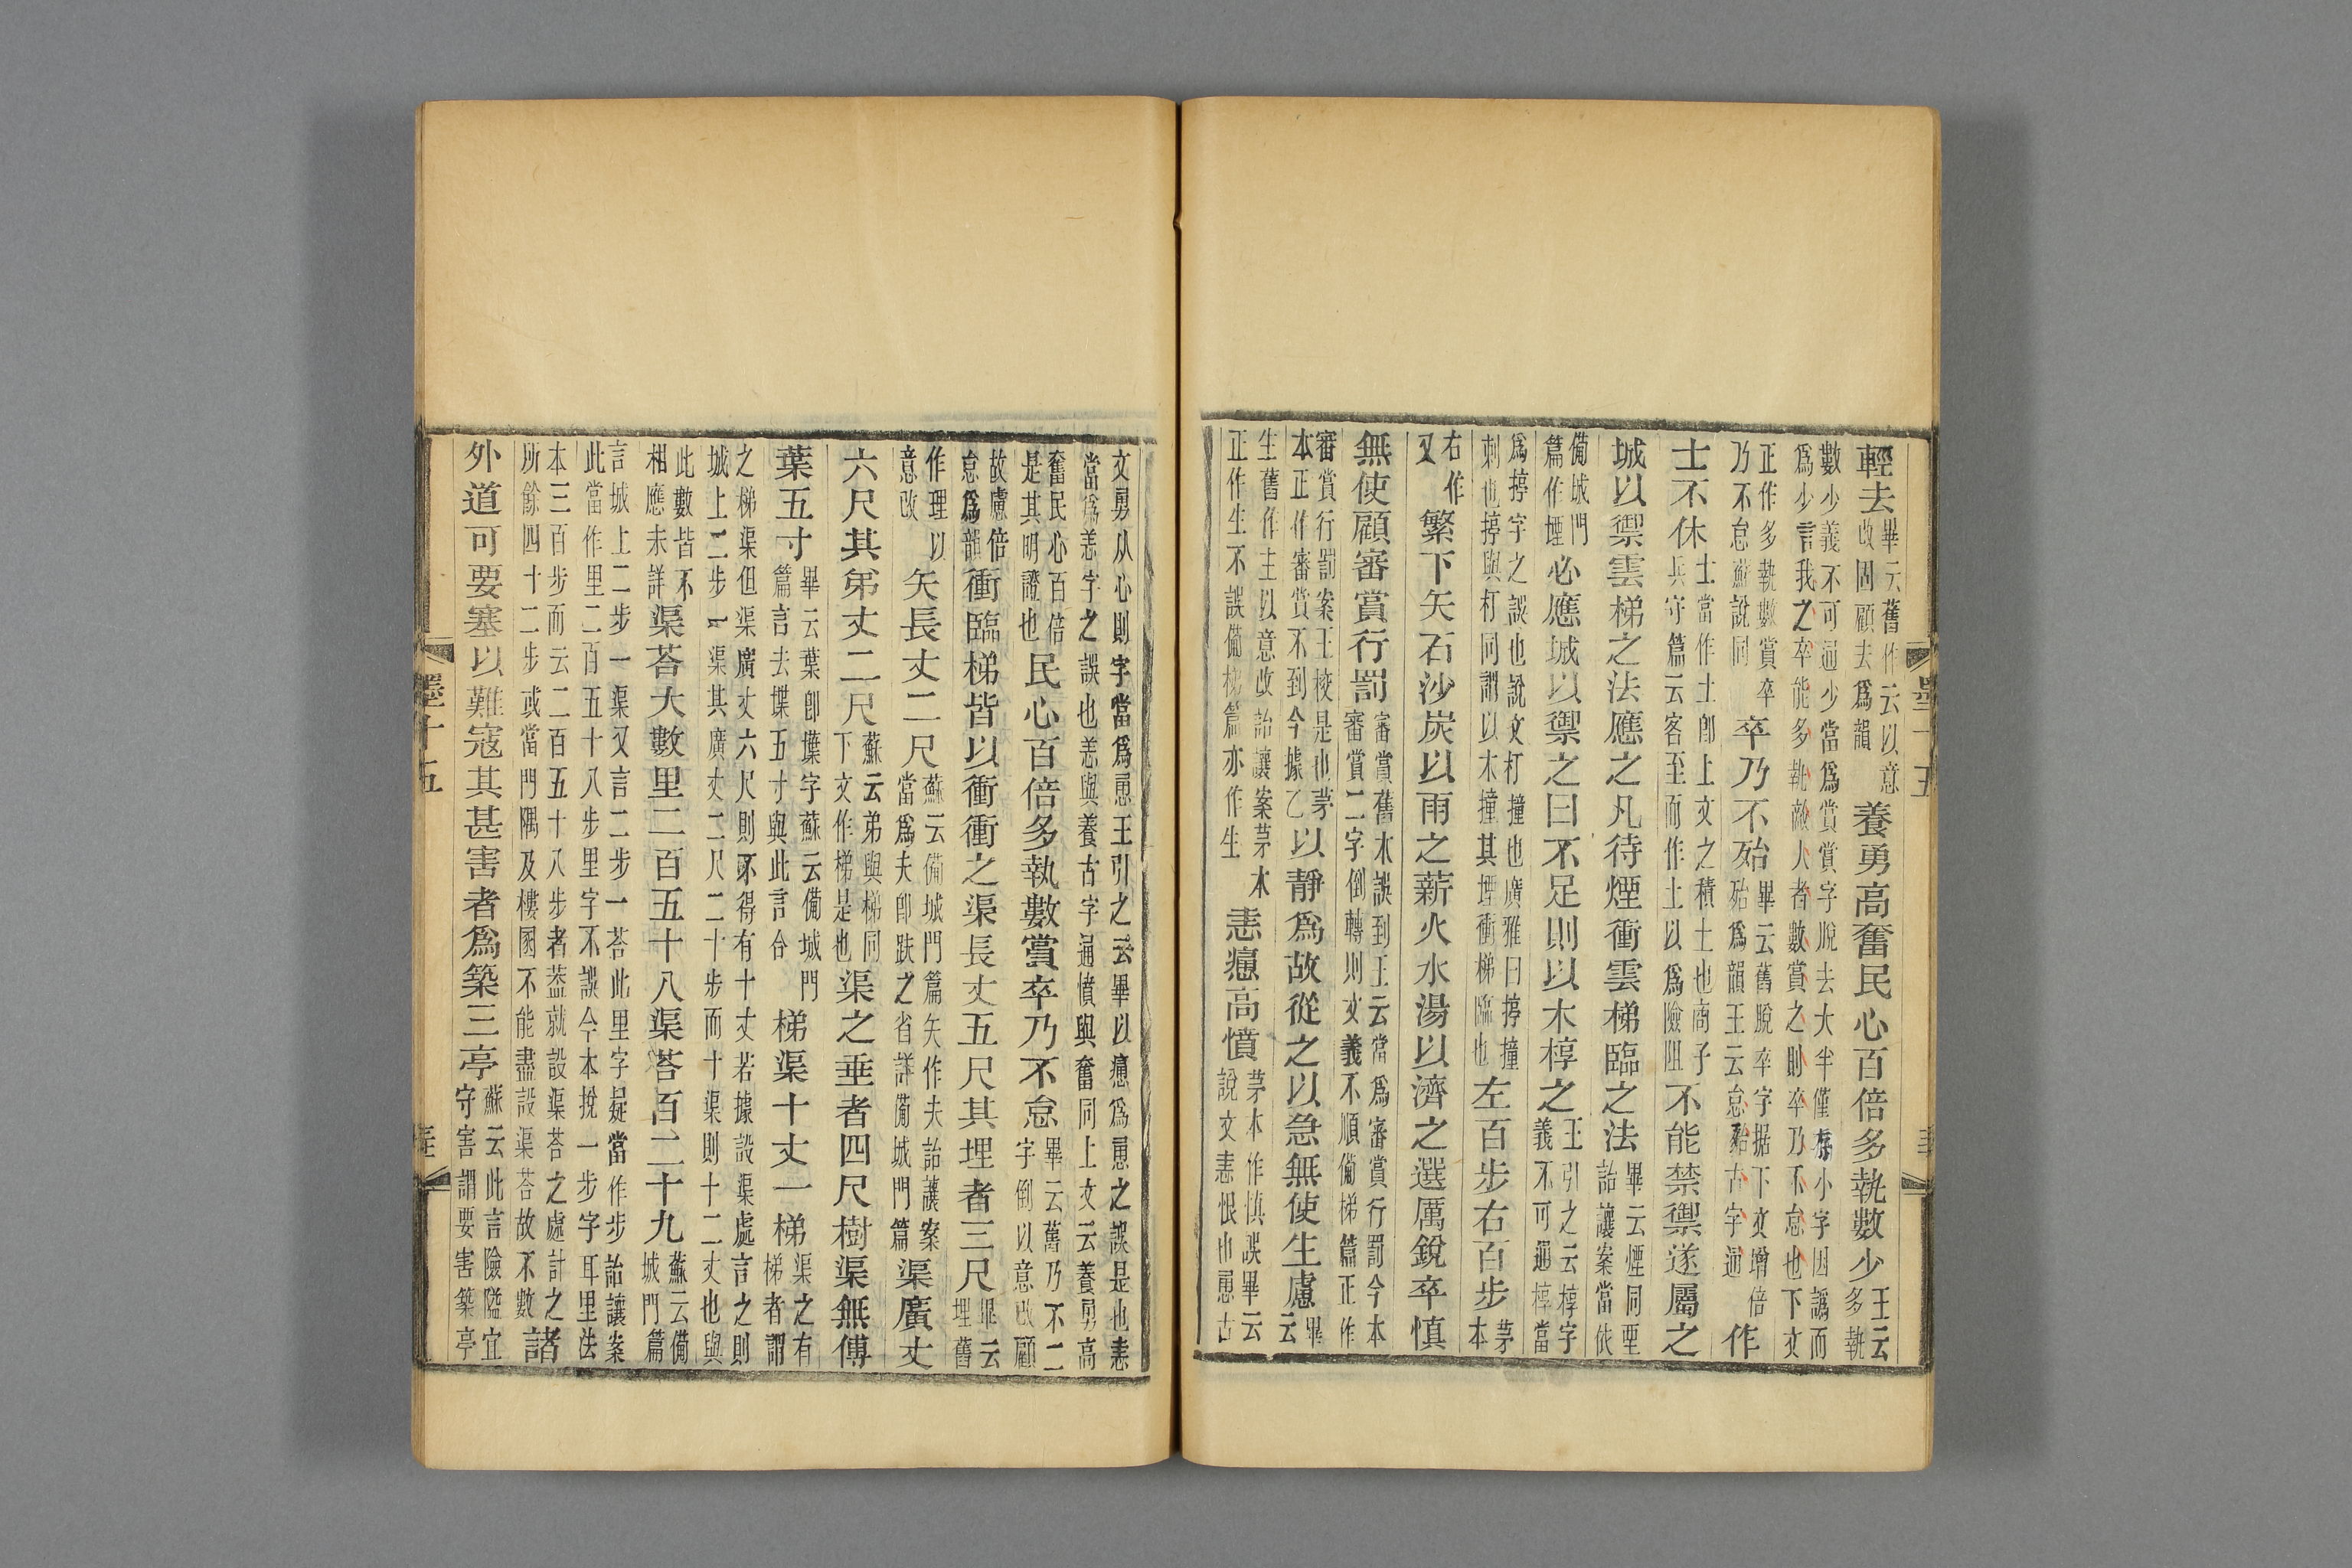 輕去畢云舊作云以意
改固顧去爲韻養勇高奮民心百倍多執數少王云
多執
數少義不可通少當爲賞賞字脫去大半僅存小字因譌而
爲少言我之卒能多執敵人者數賞之則卒乃不怠也下文
正作多執數賞卒
乃不怠蘇說同卒乃不殆畢云舊脫卒字据下文增倍
殆爲韻王云怠殆古字通作
士不休士當作土卽上文之積土也商子
兵守篇云客至而作土以爲險阻不能禁禦遂屬之
城以禦雲梯之法應之凡待煙衝雲梯臨之法畢云煙同堙
詒讓案當依
備城門
篇作堙必應城以禦之曰不足則以木椁之王引之云椁字
義不可通椁當
爲揨字之誤也說文打撞也廣雅曰揨撞
刺也揨與打同謂以木撞其堙衝梯臨也左百步右百步茅
本
右作
又繁下矢石沙炭以雨之薪火水湯以濟之選厲銳卒慎
無使顧審賞行罰審賞舊本誤到王云當爲審賞行罰今本
審賞二字倒轉則文義不順備梯篇正作
審賞行罰案王校是也茅
本正作審賞不到今據乙以靜爲故從之以急無使生慮畢
云
生舊作主以意改詒讓案茅本
正作生不誤備梯篇亦作生恚㥲高憤茅本作慎誤畢云
說文恚恨也㥲古
文勇从心則字當爲恿王引之云畢以㥲爲恿之誤是也恚
當爲恙字之誤也恙與養古字通憤與奮同上文云養勇高
奮民心百倍
是其明證也民心百倍多執數賞卒乃不怠畢云舊乃不二
字倒以意改顧
故慮倍
怠爲韻衝臨梯皆以衝衝之渠長丈五尺其埋者三尺畢云
埋舊
作理以
意改矢長丈二尺蘇云備城門篇矢作夫詒讓案
當爲夫卽趺之省詳備城門篇渠廣丈
六尺其弟丈二尺蘇云弟與梯同
下文作梯是也渠之垂者四尺樹渠無傅
葉五寸畢云葉卽堞字蘇云備城門
篇言去堞五寸與此言合梯渠十丈一梯渠之有
梯者謂
之梯渠但渠廣丈六尺則不得有十丈若據設渠處言之則
城上二步一渠其廣丈二尺二十步而十渠則十二丈也與
此數皆不
相應未詳渠荅大數里二百五十八渠荅百二十九蘇云備
城門篇
言城上二步一渠又言二步一荅此里字疑當作步詒讓案
此當作里二百五十八步里字不誤今本挩一步字耳里法
本三百步而云二百五十八步者葢就設渠荅之處計之
所餘四十二步或當門隅及樓圂不能盡設渠荅故不數諸
外道可要塞以難寇其甚害者爲築三亭蘇云此言險隘宜
守害謂要害築亭
墨十五
墨十五